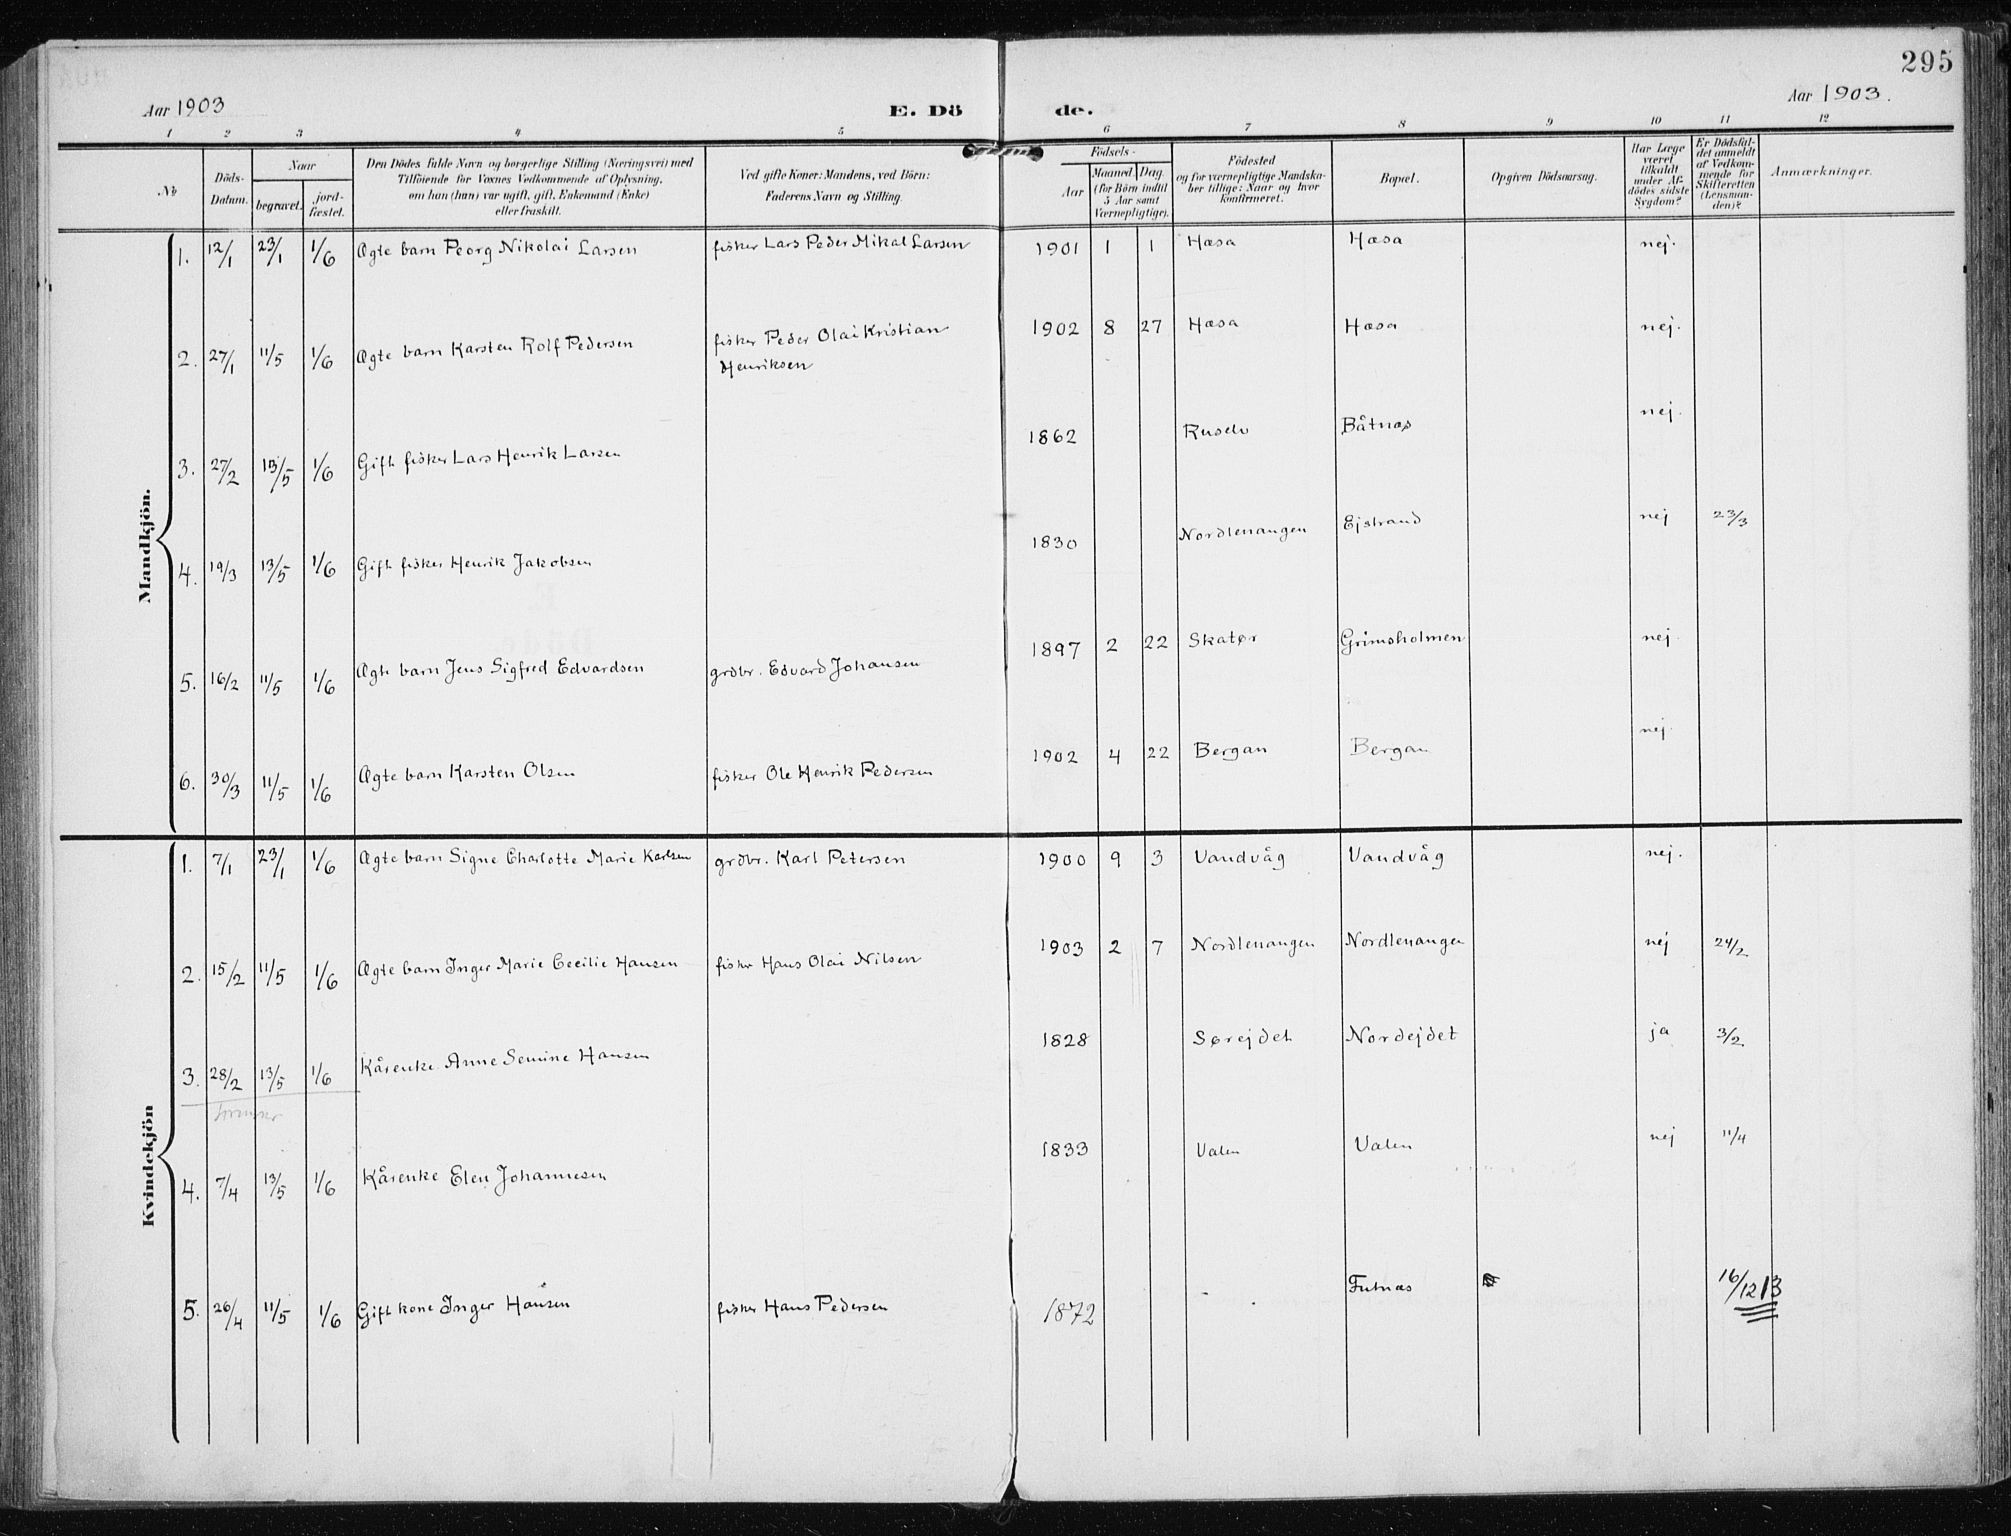 295
Aar 1903
E. Dö de.
Aar 1903.
1 2 3 4 5 6 7 8 9 10 11 12
No
Döds-
Datum.
Naar
begravet.
jord-
fæstet.
Den Dödes fulde Navn og borgerlige Stilling (Næringsvei) med
Tilföiende for Voxnes Vedkommende af Oplysning,
om han (hun) var ugift, gift, Enkemand (Enke)
eller fraskilt.
Ved gifte Koner: Mandens, ved Börn:
Faderens Navn og Stilling.
Födsels-
Aar
Maaned. Dag.
(for Börn indtil
5 Aar samt
Værnepligtige).
Födested
og for værnepligtige Mandska-
ber tillige: Naar og hvor
konfirmeret.
Bopæl.
Opgiven Dödsaarsag.
Har Læge
været
tilkaldt
under Af-
dödes sidste
Sygdom?
Er Dödsfal-
det anmeldt
af Vedkom-
mende for
Skifteretten
(Lensman-
den)?
Anmærkninger.
Mandkjön.
1. 12/1 23/1 1/6 Ægte barn Peorg Nikolai Larsen fisker Lars Peder Mikal Larsen 1901 1 1 Hæsa Hæsa nej.
2. 27/1 11/5 1/6 Ægte barn Karsten Rolf Pedersen fisker Peder Olai Kristian 1902 8 27 Hæsa Hæsa nej.
Henriksen
3. 27/2 13/5 1/6 Gift fisker Lars Henrik Larsen 1862 Ruselv Båtnæs nej.
4. 19/3 13/5 1/6 Gift fisker Henrik Jakobsen 1830 Nordlenangen Ejstrand nej 23/3
5. 16/2 11/5 1/6 Ægte barn Jens Sigfred Edvardsen grdbr. Edvard Johansen 1897 2 22 Skatør Grimsholmen nej
6. 30/3 11/5 1/6 Ægte barn Karsten Olsen fisker Ole Henrik Pedersen 1902 4 22 Bergan Bergan nej.
Kvindekjön
1. 7/1 23/1 1/6 Ægte barn Signe Charlotte Marie Karlsen grdbr. Karl Petersen 1900 9 3 Vandvåg Vandvåg nej.
2. 15/2 11/5 1/6 Ægte barn Inger Marie Cecilie Hansen fisker Hans Olai Nilsen 1903 2 7 Nordlenangen Nordlenangen nej 24/2
3. 28/2 13/5 1/6 Kårenke Anne Semine Hansen 1828 Sørejdet Nordejdet ja 3/2
4. 7/4 13/5 1/6 Kårenke Elen Johannesen 1833 Valen Valen nej 11/4
5. 26/4 11/5 1/6 Gift kone Inger Hansen fisker Hans Pedersen 1872 Futnæs 16/12 13